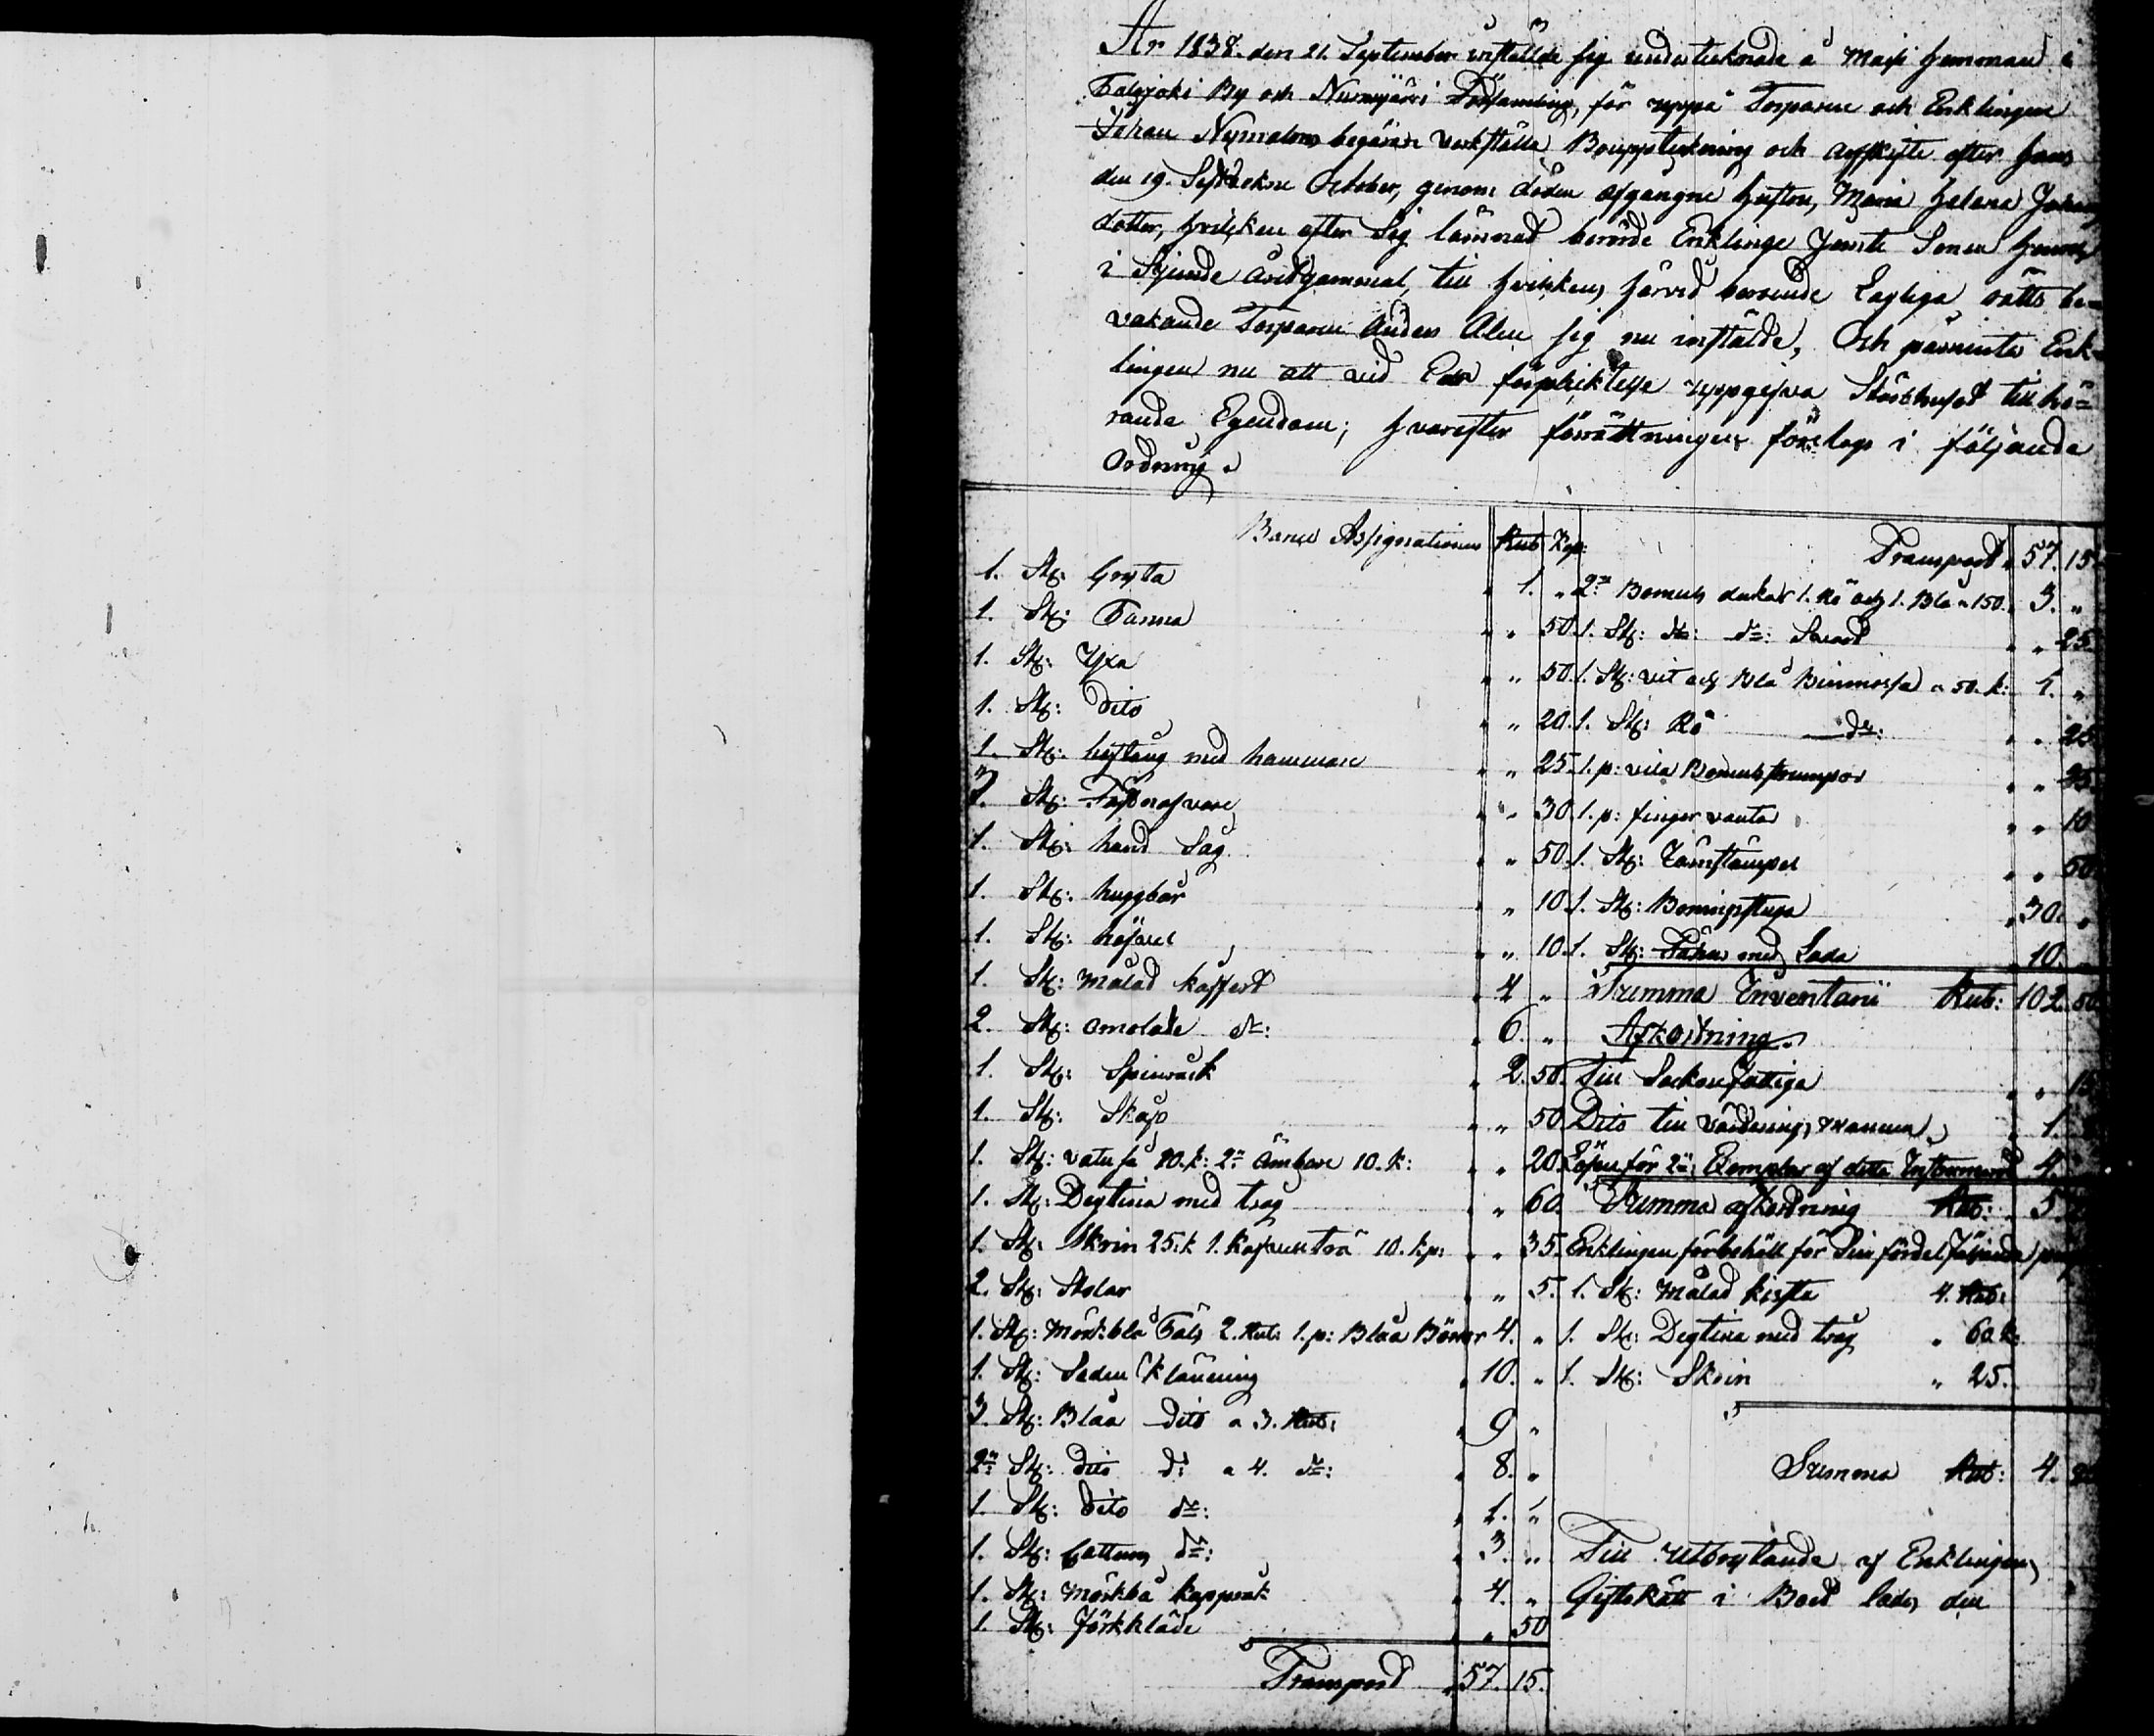 År 1838. den 21. September instälde sig undertecknade å Maisi hemmand i
Palojoki By och Nurmijärvi Församling, för uppå Torparen och Enklingen
Johan Nymalms begäran verkställa Bouppteckning och arfskifte efter hans
den 19. October, genom döden afgångne hustru, Maria Helena Johans
dotter, hvilken efter Sig lämnad berörde Enklinge Jemte Sonen
i Sjunde året gammal, till hvilkens härvid beroende Lagliga rätts be=
vakande Torparen Anders Alen sig nu instälde, Och påmintes Enk=
lingen nu att vid Eds förpliktelse uppgifva Stärbhuset tillhö=
rande Egendom; hvarefter förrättningen företogs i följande
Ordning.
Banco Assignationer Rub Kop:
1. St: Gryta " 1. "
1. St: Panna " " 50.
1. St: Yxa " " 50.
1. St: Dito " " 20.
1. St: hoftång med hammare " " 25.
3. St: nafvare " " 30.
1. St: hand Såg " " 50.
1. St: huggbår " " 10.
1. St: höfvel " " 10.
1. St: Målad koffert " 4 "
2. St: omolade do: " 6. "
1. St: Spinrock " 2. 50.
1. St: Skåp " " 50.
1. St: vatuså 10. k: 2ne Ämbare 10. k: " " 20.
1. St: Degtina med tråg " " 60.
1. St: Skrin 25. k 1. Kafveltrå 10. kp: " " 35.
2. St: Stolar " " 5.
1. St: Mörkblå Päls 2. Rub: 1. p: Blåa 4. "
1. St: Siden Klänning " 10. "
3. St: Blåa Dito a 3. Rub: " 9 "
2ne St: dito do: a 4. do: " 8. "
1. St: dito do: " 1. "
1. St: Cattuns do: " 3. "
1. St: Mörkblå kapprock " 4. "
1. St: Förkläde " " 50
Transport " 57. 15.
Transport " 57. 15.
2ne Bomuls dukar 1. Rö och 1. Blå a 150. " 3. "
1. St: do: do: Svart " " 25.
1. St: vit och Blå Binmössa a 50. k: 1. "
1. St: Rö do: " " 25.
1. p: vita Bomulsstrumpor " " 25.
1. p: finger vantar " " 10
1. St: " " 50.
1. St: Boningstuga " 30. "
1. St: med Lada " 10. "
Summa Inventarii Rub: 102. 50
Afkortning.
Till Sockenfattiga " " 15.
Dito till Värderings " 1.
Lösen för 2ne Exemplar af detta Instrument 4.
Summa afkortning Rub: 5.
Enklingen förbehållt för Sin fördel följande
1. St: Målad kista 4. Rub:
1. St: Degtina med tråg " 60. k:
1. St: Skrin " 25.
Summa Rub: 4.
Till Utbrytande af Enklingens
Giftorätt i Boed lades den